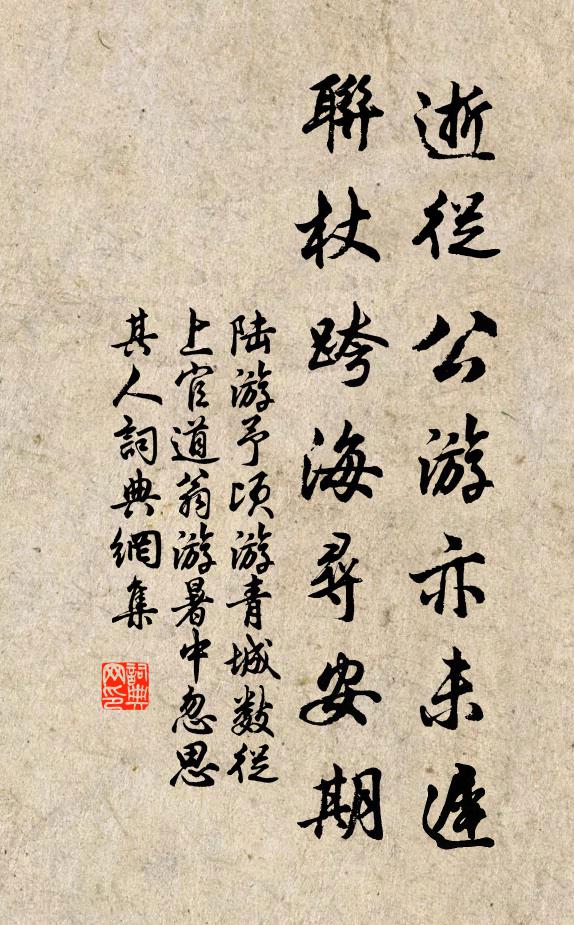 逝從公游亦未遲
聯杖跨海尋安期
陆游予頃游青城數從
上官道翁游暑中忽思
其人詞典網集
詞典网印